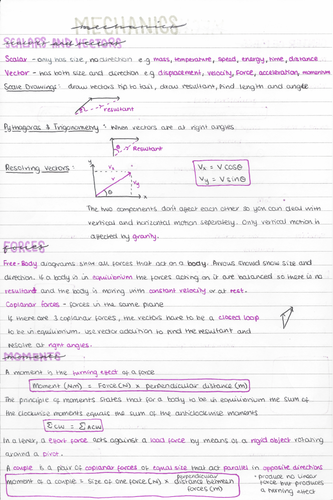 MECHANICS
mechanics
SCALARS AND VECTORS
Scalar - only has size, no direction e.g mass, temperature, speed, energy, time, distance
Vector - has both size and direction e.g displacement, velocity, force, acceleration, momentum
Scale Drawings: draw vectors tip to tail, draw resultant, find length and angle
resultant
Pythagoras & Trigonometry: when vectors are at right angles
θ
Resultant
Resolving vectors:
y
v
Vy
θ
x
Vx
Vx = V cosθ
Vy = V sinθ
The two components don't affect each other so you can deal with
vertical and horizontal motion seperately. Only vertical motion is
affected by gravity.
FORCES
Free-Body diagrams show all forces that act on a body. Arrows should show size and
direction. If a body is in equilibrium the forces acting on it are balanced so there is no
resultant and the body is moving with constant velocity or at rest.
Coplanar forces - forces in the same plane
If there are 3 coplanar forces, the vectors have to be a closed loop
to be in equilibrium. Use vector addition to find the resultant and
resolve at right angles.
MOMENTS
A moment is the turning effect of a force
Moment (Nm) = Force(N) x perpendicular distance (m)
The principle of moments states that for a body to be in equilibrium the sum of
the clockwise moments equals the sum of the anticlockwise moments
Σcw = Σacw
In a lever, a effort force acts against a load force by means of a rigid object rotating
around a pivot.
A couple is a pair of coplanar forces of equal size that act parallel in opposite directions
moment of a couple = size of one force (N) x perpendicular distance between forces (m)
· produce no linear
force but produces
a turning effect